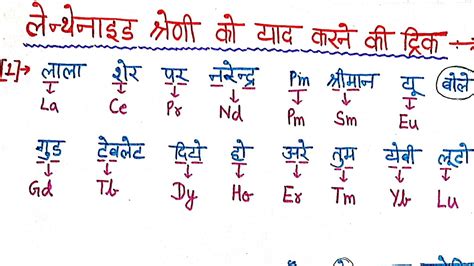 लेन्थेनाइड श्रेणी को याद करने की ट्रिक →
[1]→ लाला शेर पर नरेन्द्र Pm श्रीमान यू बोले
La Ce Pr Nd Pm Sm Eu
गुड टेबलेट दिटो हो अरे तुम येबी लूटो
Gd Tb Dy Ho Er Tm Yb Lu